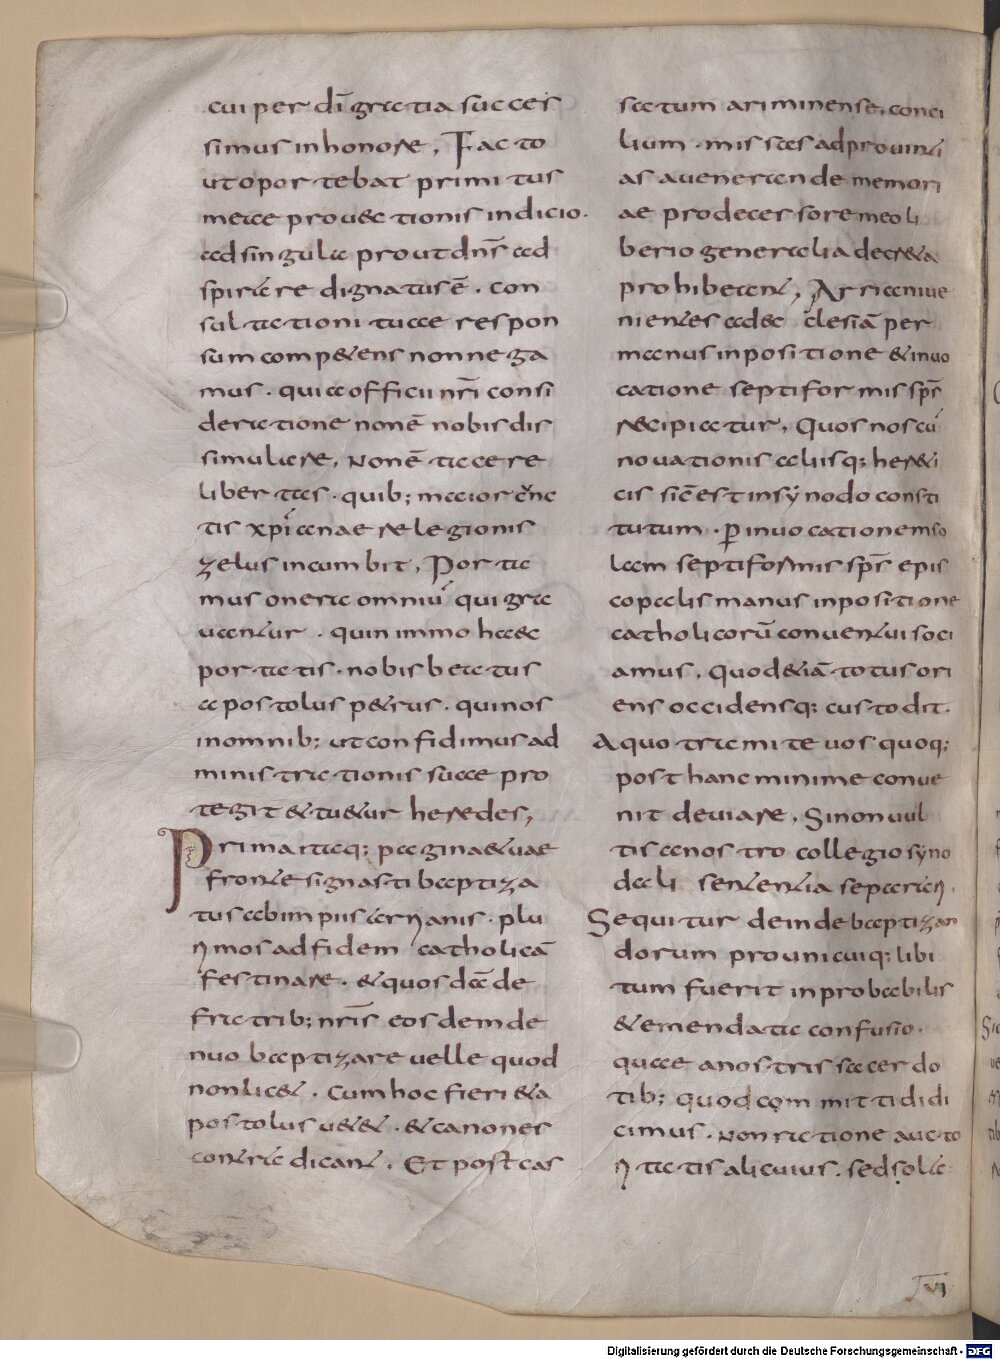 cui per dī gratia succes
simus in honore, Facto
ut oportebat primitus
meae prouectionis indicio.
ad singula prout dn̄s ad
spirare dignatus ē. con
sultationi tuae respon
sum competens non nega
mus. quia officii nr̄i consi
deratione non ē nobis dis
simulare, Non ē tacere
libertas. quib; maior cūnc
tis xp̄ianae relegionis
zelus incumbit, Porta
mus onera omniū qui gra
uantur. quin immo haec
portat is. nobis beatus
apostolus petrus. qui nos
in omnib; ut confidimus ad
ministrationis suae pro
tegit et tuetur heredes,
Prima itaq; pagina et uae
fronte signasti baptiza
tus ab impiis arrianis. plu
rimos ad fidem catholicā
festinare. et quosdā de
fratrib; nr̄is eosdem de
nuo baptizare uelle quod
non licet. Cum hoc fieri et a
postolus uetet. et canones
contradicant. Et post cas
satum ariminense conci
lium. missas ad prouinti
as a uenerande memori
ae prodecessore meo li
berio generalia decreta
prohibeant, Arrianiue
nientes ad ec clesiā per
manus inpositione et inuo
catione septiformis sp̄s
recipiatur, Quos nos cū
nouationis aliisq; hereti
cis sic est in synodo consti
tutum. p inuocationem so
lam septiformis sp̄s epis
copalis manus inpositione
catholicorū conuentui soci
amus, Quod etiā totus ori
ens occidensq; custodit.
A quo tramite uos quoq;
post hanc minime conue
nit deuiare, Si non uul
tis a nostro collegio syno
dali sententia separari.
Sequitur deinde baptizan
dorum pro unicuiq; libi
tum fuerit inprobabilis
et emendata confusio.
quae a nostris sacerdo
tib; quod com mitti didi
cimus. Non ratione aucto
ritatis alicuius. sed sola
IVI
Digitalisierung gefördert durch die Deutsche Forschungsgemeinschaft - DFG